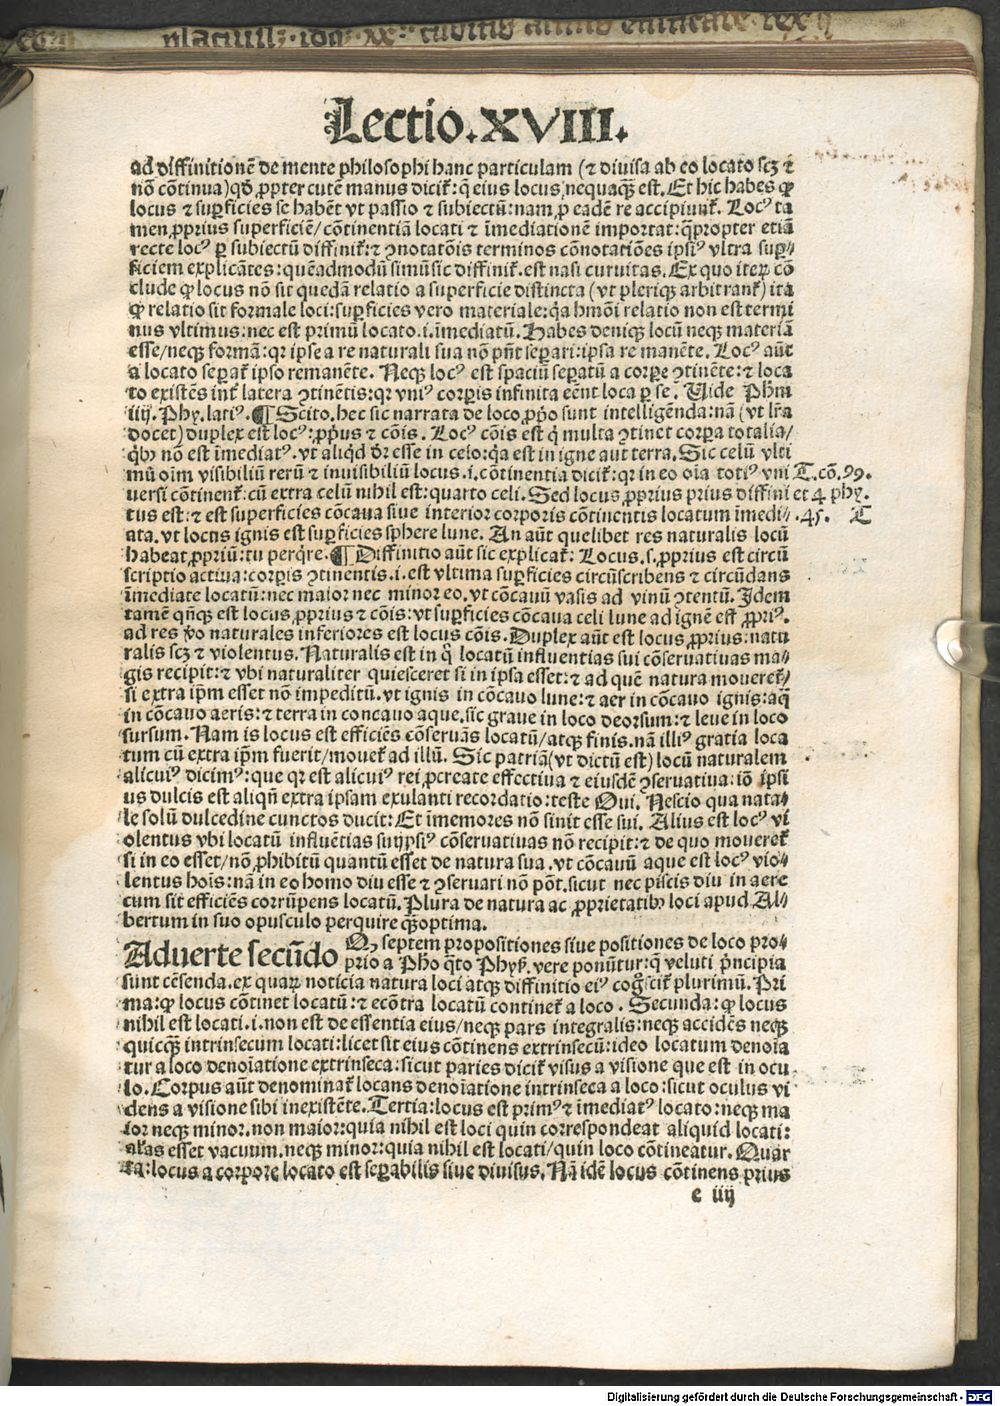 Lectio.XVIII.
ad diffinitionē de mente philosophi hanc particulam (⁊ diuisa ab eo locato scꝫ ⁊
nō cōtinua) qđ ꝓpter cutē manus dicit̄: q̄ eius locus nequaq̄ꝫ est. Et hic habes ꝙ
locus ⁊ suꝑficies se habēt vt passio ⁊ subiectū: nam ꝓ eadē re accipiunt̄. Locꝰ ta
men ꝓprius superficiē/ cōtinentiā locati ⁊ īmediationē importat: q̄propter etiā
recte locꝰ ꝑ subiectū diffinit̄: ⁊ ꝯnotatōis terminos cōnotatiōes ipsiꝰ vltra suꝑ⸗
ficiem explicātes: quēadmodū simū sic diffinit̄. est nasi curuitas. Ex quo iteꝝ cō
clude ꝙ locus nō sit quedā relatio a superficie distincta (vt pleriqꝫ arbitrant̄) ita
ꝙ relatio sit formale loci: suꝑficies vero materiale: q̄a hmōi relatio non est termi
nus vltimus: nec est primū locato .i. īmediatū. Habes deniqꝫ locū neqꝫ materiā
esse/ neqꝫ formā: qꝛ ipse a re naturali sua nō pn̄t seꝑari: ipsa re manēte. Locꝰ aūt
a locato seꝑat̄ ipso remanēte. Neqꝫ locꝰ est spaciū seꝑatū a corꝑe ꝯtinēte: ⁊ loca
to existēs int̄ latera ꝯtinētis: qꝛ vniꝰ corꝑis infinita eēnt loca ꝑ se. Uide Phm
iiij. Phy. latiꝰ. ¶ Scito. hec sic narrata de loco ꝓp̄o sunt intelligēda: nā (vt lr̄a
docet) duplex est locꝰ: ꝓp̄us ⁊ cōis. Locꝰ cōis est q̄ multa ꝯtinet corꝑa totalia/
q̄bꝰ nō est īmediatꝰ. vt aliq̄d dr̄ esse in celo: q̄a est in igne aut terra. Sic celū vlti
mū oīm visibiliū rerū ⁊ inuisibiliū locus .i. cōtinentia dicit̄: qꝛ in eo oīa totiꝰ vni
T. cō. 99.
uersi cōtinent̄: cū extra celū nihil est: quarto celi. Sed locus ꝓprius prius diffini
et 4 phy.
tus est: ⁊ est superficies cōcaua siue interior corporis cōtinentis locatum īmedi⸗
.45. T
ata. vt locus ignis est suꝑficies sphere lune. An aūt quelibet res naturalis locū
habeat ꝓpriū: tu perq̄re. ¶ Diffinitio aūt sic explicat̄: Locus .s. ꝓprius est circū
scriptio actiua: corꝑis ꝯtinentis .i. est vltima suꝑficies circūscribens ⁊ circūdans
īmediate locatū: nec maior nec minor eo. vt cōcauū vasis ad vinū ꝯtentū. Idem
tamē qn̄qꝫ est locus ꝓprius ⁊ cōis: vt suꝑficies cōcaua celi lune ad ignē est ꝓpriꝰ.
ad res ꝟo naturales inferiores est locus cōis. Duplex aūt est locus ꝓprius: natu
ralis scꝫ ⁊ violentus. Naturalis est in q̄ locatū influentias sui cōseruatiuas ma⸗
gis recipit: ⁊ vbi naturaliter quiesceret si in ipsa esset: ⁊ ad quē natura moueret̄⸗
si extra ip̄m esset nō impeditū. vt ignis in cōcauo lune: ⁊ aer in cōcauo ignis: aq̄
in cōcauo aeris: ⁊ terra in concauo aque. sic graue in loco deorsum: ⁊ leue in loco
sursum. Nam is locus est efficiēs cōseruās locatū/ atqꝫ finis. nā illiꝰ gratia loca
tum cū extra ip̄m fuerit/ mouet̄ ad illū. Sic patriā (vt dictū est) locū naturalem
alicuiꝰ dicimꝰ: que qꝛ est alicuiꝰ rei ꝓcreate effectiua ⁊ eiusdē ꝯseruatiua: iō ipsi
us dulcis est aliqn̄ extra ipsam exulanti recordatio: teste Oui. Nescio qua nata⸗
le solū dulcedine cunctos ducit: Et īmemores nō sinit esse sui. Alius est locꝰ vi
olentus vbi locatū influētias suijpsiꝰ cōseruatiuas nō recipit: ⁊ de quo moueret̄
si in eo esset/ nō ꝓhibitū quantū esset de natura sua. vt cōcauū aque est locꝰ vio⸗
lentus hoīs: nā in eo homo diu esse ⁊ ꝯseruari nō pōt. sicut nec piscis diu in aere
cum sit efficiēs corrūpens locatū. Plura de natura ac ꝓprietatibꝰ loci apud Al⸗
bertum in suo opusculo perquire q̄ꝫoptima.
Aduerte secūdo Qꝫ septem propositiones siue positiones de loco pro⸗
prio a Pho q̄to Phyſ. vere ponūtur: q̄ veluti p̄ncipia
sunt cēsenda. ex quaꝝ noticia natura loci atqꝫ diffinitio eiꝰ cog̊scit̄ plurimū. Pri
ma: ꝙ locus cōtinet locatū: ⁊ ecōtra locatū continet̄ a loco. Secunda: ꝙ locus
nihil est locati .i. non est de essentia eius/ neqꝫ pars integralis: neqꝫ accidēs neqꝫ
quicq̄ꝫ intrinsecum locati: licet sit eius cōtinens extrinsecū: ideo locatum denoīa
tur a loco denoīatione extrinseca: sicut paries dicit̄ visus a visione que est in ocu
lo. Corpus aūt denominat̄ locans denoīatione intrinseca a loco: sicut oculus vi
dens a visione sibi inexistēte. Tertia: locus est primꝰ ⁊ īmediatꝰ locato: neqꝫ ma
ior neqꝫ minor. non maior: quia nihil est loci quin correspondeat aliquid locati:
al̄as esset vacuum. neqꝫ minor: quia nihil est locati/ quin loco cōtineatur. Quar
ta: locus a corpore locato est seꝑabilis siue diuisus. Nā idē locus cōtinens prius
e iiij
Digitalisierung gefördert durch die Deutsche Forschungsgemeinschaft - DFG